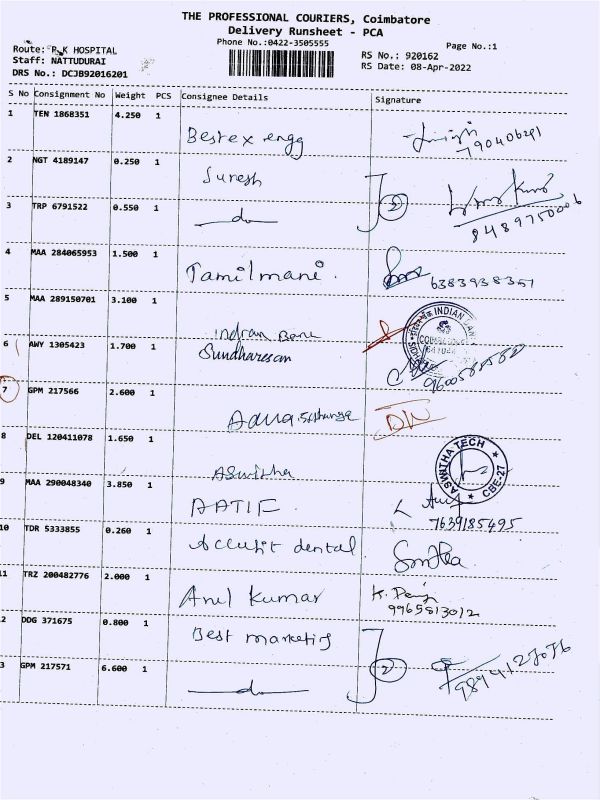 THE PROFESSIONAL COURIERS, Coimbatore
Delivery Runsheet - PCA
Phone No.:0422-3505555
Page No.:1
Route: R K HOSPITAL
Staff: NATTUDURAI
DRS No.: DCJB92016201
RS No.: 920162
RS Date: 08-Apr-2022
S No Consignment No Weight PCS Consignee Details Signature
1 TEN 1868351 4.250 1
Bestex engg
790406291
2 NGT 4189147 0.250 1
Suresh 2
3 TRP 6791522 0.550 1
do 8489750006
4 MAA 284065953 1.500 1
Tamilmani. 6383938351
5 MAA 289150701 3.100 1
Indian Bank INDIAN
6 AWY 1305423 1.700 1
Sundharesan
7 GPM 217566 2.600 1
8 DEL 120411078 1.650 1
Aswitha ASWITHA TECH CBE-27
9 MAA 290048340 3.850 1
AATIF
7639185495
10 TDR 5333855 0.260 1
Accufit dental
11 TRZ 200482776 2.000 1
Anil Kumar
9965813012
2 DDG 371675 0.800 1
Best marketing 2
3 GPM 217571 6.600 1
do